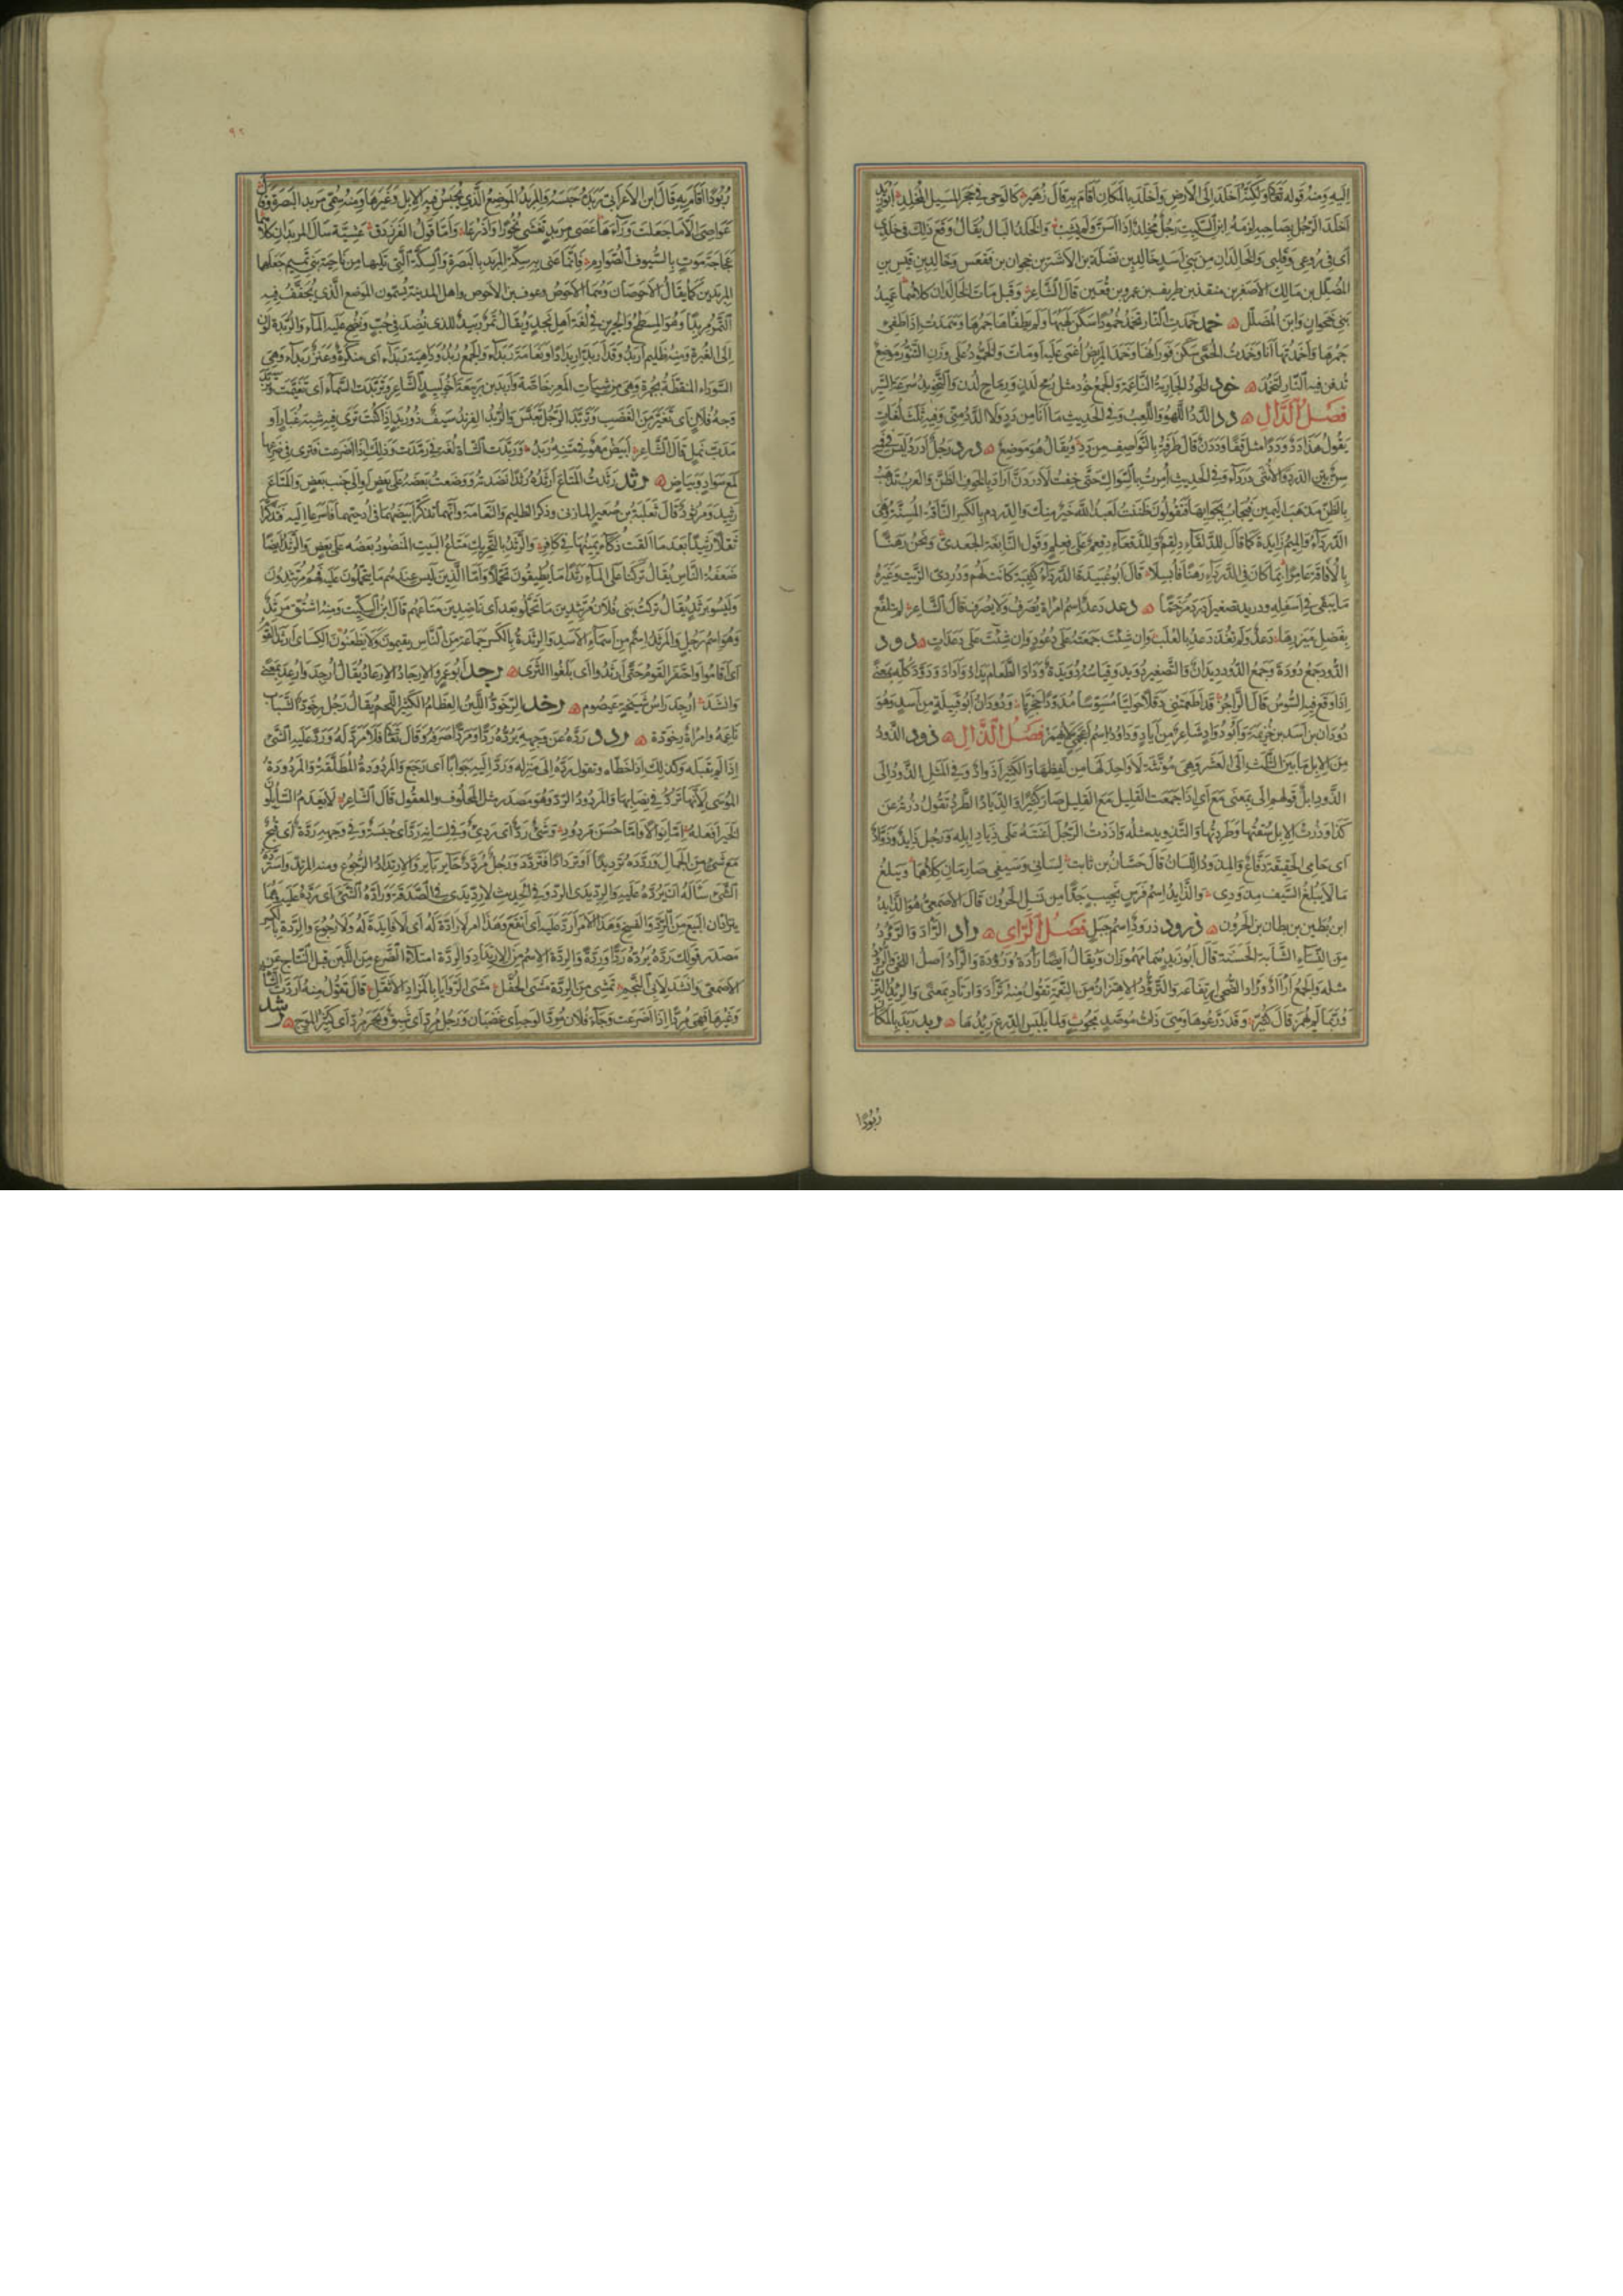 إليه ومنه قوله تعالى ولكنه أخلد إلى الأرض وأخلد بالمكان أقام به قال زهير كالوحى في حجر المسيل المخلد أبو زيد
أخلد الرجل بصاحبه لزمه ابن السكيت رجل مخلد إذا أسن ولم يشب والخلد البال يقال وقع ذلك في خلدى
أى في روعى وقلبى والخالدان من بنى أسد خالد بن نضلة بن الأشتر بن جحوان بن فقعس وخالد بن قيس بن
المضلل بن مالك الأصغر بن منقذ بن طريف بن عمرو بن قعين قال الشاعر وقبلى مات الخالدان كلاهما عميد
بنى جحوان وابن المضلل خمد خمدت النار تخمد خمودا سكن لهبها ولم يطفأ جمرها وهمدت إذا طفئ
جمرها وأخمدتها أنا وخمدت الحمى سكن فورانها وخمد المريض أغمى عليه أو مات والخمود على وزن التنور موضع
تدفن فيه النار لتخمد خود الخود الجارية الناعمة والجمع خود مثل رمح لدن ورماح لدن والتخويد سرعة السير
فصل الدال دد الدد اللهو واللعب وفي الحديث ما أنا من دد ولا الدد منى وفيه ثلث لغات
يقول هذا دد وددا مثل قفا وددن قال طرفة بالنواصف من دد ويقال هو موضع درد رجل أدرد ليس في فيه
سن بين الدرد والأنثى درداء وفي الحديث أمرت بالسواك حتى خفت لأدردن أراد بالخوف الظن والعرب تذهب
بالظن مذهب اليمين فيجاب بجوابها فتقولون ظننت لعبد الله خير منك والدردم بالكسر الناقة المسنة وهى
الدرداء والميم زايدة كما قال للدلقاء دلقم وللدقعاء دقعم على فعلم وقول النابغة الجعدى ونحن رهنا
بالأفاقة عامرا بما كان في الدرداء رهنا فأبسلا قال أبو عبيد هذه الدرداء كتيبة كانت لهم ودردى الزيت وغيره
ما يبقى في أسفله ودريد تصغير أدرد مرخما دعد دعد اسم امرأة يصرف ولا يصرف قال الشاعر لم تتلفع
بفضل ميزرها دعد ولم تغذ دعد بالعلب وإن شئت جمعته على دعود وإن شئت على دعدات دود
الدود جمع دودة وجمع الدود ديدان والتصغير دويد وقياسه دويدة وداد الطعام يداد وأداد ودود كله بمعنى
إذا وقع فيه السوس قال الراجز قد أطعمتنى دقلا حوليا مسوسا مدودا حجريا ودودان أبو قبيلة من أسد وهو
دودان بن أسد بن خزيمة وأبو دواد شاعر من إياد وداود اسم أعجمى لا يهمز فصل الذال ذود الذود
من الإبل ما بين الثلث إلى العشر وهى مؤنثة لا واحد لها من لفظها والكثير أذواد وفي المثل الذود إلى
الذود إبل قولهم إلى بمعنى مع أى إذا جمعت القليل مع القليل صار كثيرا والذياد الطرد تقول ذدته عن
كذا وذدت الإبل سقتها وطردتها والتذويد مثله وأذدت الرجل أعنته على ذياد إبله ورجل ذايد وذواد
أى حامى الحقيقة دفاع والمذود اللسان قال حسان بن ثابت لسانى وسيفى صارمان كلاهما ويبلغ
ما لا يبلغ السيف مذودى والذايد اسم فرس نجيب جدا من نسل الحرون قال الأصمعى هو الذايد
ابن بطين بن بطان بن الحرون ذرود ذرود اسم جبل فصل الراى رأد الرأد والرؤد
من النساء الشابة الحسنة قال أبو زيد هما مهموزان ويقال أيضا رأدة ورؤدة والرأد أصل اللحى والرؤد
مثله والجمع أرآد ورأد الضحى ارتفاعه والترؤد الاهتزاز من النعمة تقول منه ترأد وارتأد بمعنى والريد الترب
وربما لم يهمز قال كثير وقد درعوها وهى ذات موصد مجوب ولما يلبس الدرع ريدها ربد ربد بالمكان
ربودا
٩٢
ربودا أقام به قال ابن الأعرابى ربده حبسه والمربد الموضع الذى يحبس فيه الإبل وغيرها ومنه سمى مربد البصرة وقال
عواصى إلا ما جعلت وراءها عصى مربد تغشى نحورا وأذرعا وأما قول الفرزدق عشية سال المربدان كلاهما
عجاجة موت بالسيوف الصوارم فإنما عنى به سكة المربد بالبصرة والسكة التى تليها من ناحية بنى تميم جعلها
المربدين كما يقال الأحوصان وهما الأحوص وعوف بن الأحوص وأهل المدينة يسمون الموضع الذى يجفف فيه
التمر مربدا وهو المسطح والجرين في لغة أهل نجد ويقال تمر ربيد للذى نضد في جب ونضح عليه الماء والربدة لون
إلى الغبرة ومنه ظليم أربد وقد أربد اربدادا ونعامة ربداء والجمع ربد وداهية ربداء أى منكرة وعنز ربداء وهى
السوداء المنقطة بحمرة وهى من شيات المعز خاصة وأربد بن ربيعة أخو لبيد الشاعر وتربدت السماء أى تغيمت وتربد
وجه فلان أى تغير من الغضب وتربد الرجل تعبس والربد الفرند سيف ذو ربد إذا كنت ترى فيه شبه غبار أو
مدب نمل قال الشاعر أبيض مهو في متنه ربد وربدت الشاة لغة في رمدت وذلك إذا أضرعت فترى في ضرعها
لمع سواد وبياض رثد رثدت المتاع أرثده رثدا نضدته ووضعت بعضه على بعض أو إلى جنب بعض والمتاع
رثيد ومرثود قال ثعلبة بن صعير المازنى وذكر الظليم والنعامة وأنهما تذكرا بيضهما في أدحيهما فأسرعا إليه فتذكرا
ثقلا رثيدا بعد ما ألقت ذكاء يمينها في كافر والرثد بالتحريك متاع البيت المنضود بعضه على بعض والرثد أيضا
ضعفة الناس يقال تركنا على الماء رثدا ما يطيقون تحملا وأما الذين ليس عندهم ما يتحملون عليه فهم مرتثدون
وليسوا برثد يقال تركت بنى فلان مرتثدين ما تحملوا بعد أى ناضدين متاعهم قال ابن السكيت ومنه اشتق مرثد
وهو اسم رجل والمرثد اسم من أسماء الأسد والرثدة بالكسر جماعة من الناس يقيمون ولا يظعنون الكساى أرثد القوم
أى أقاموا واحتفر القوم حتى أرثدوا أى بلغوا الثرى رجد أبو عمرو الإرجاد الإرعاد يقال أرجد وأرعد بمعنى
وانشد أرجد راس شيخة عيصوم رخد الرخود اللين العظام الكثير اللحم يقال رجل رخود الشباب
ناعمه وامرأة رخودة ردد رده عن وجهه يرده ردا ومردا صرفه وقال تعالى فلا مرد له ورد عليه الشئ
إذا لم يقبله وكذلك إذا خطاه وتقول رده إلى منزله ورد إليه جوابا أى رجع والمردودة المطلقة والمردودة
الموسى لأنها ترد في نصابها والمردود الرد وهو مصدر مثل المحلوف والمعقول قال الشاعر لا يعدم السايلون
الخير أفعله إما نوالا وإما حسن مردود وشئ رد أى ردئ وفي لسانه رد أى حبسة وفي وجهه ردة أى قبح
مع شئ من الجمال وردده ترديدا وتردادا فتردد ورجل مردد حاير باير والارتداد الرجوع ومنه المرتد واسترده
الشئ سأله أن يرده عليه والرديدى الرد وفي الحديث لا رديدى في الصدقة وراده الشئ أى رده عليه وهما
يترادان البيع من الرد والفسخ وهذا الأمر أرد عليه أى أنفع وهذا أمر لا رادة له أى لا فايدة له ولا رجوع والردة بالكسر
مصدر قولك رده يرده ردا وردة والردة الاسم من الارتداد والردة امتلاء الضرع من اللبن قبل النتاج عن
الأصمعى وانشد لأبى النجم تمشى من الردة مشى الحفل مشى الروايا بالمزاد الأثقل قال تقول منه أردت الشاة
وغيرها فهى مرد إذا أضرعت وجاء فلان مرد الوجه أى غضبان ورجل مرد أى شبق وبحر مرد أى كثير الموج رشد